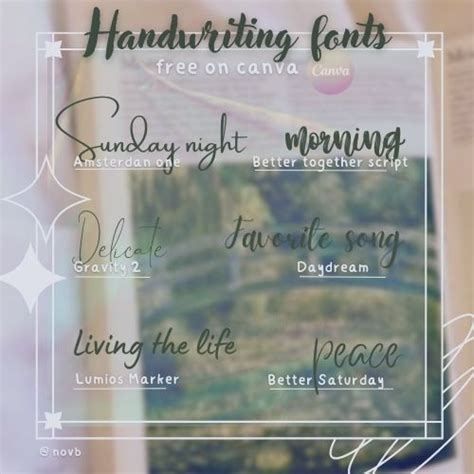 Handwriting fonts
free on canva Canva
Sunday night
Amsterdan one
morning
Better together script
Delicate
Gravity 2
Favorite song
Daydream
Living the life
Lumios Marker
peace
Better Saturday
@ novb